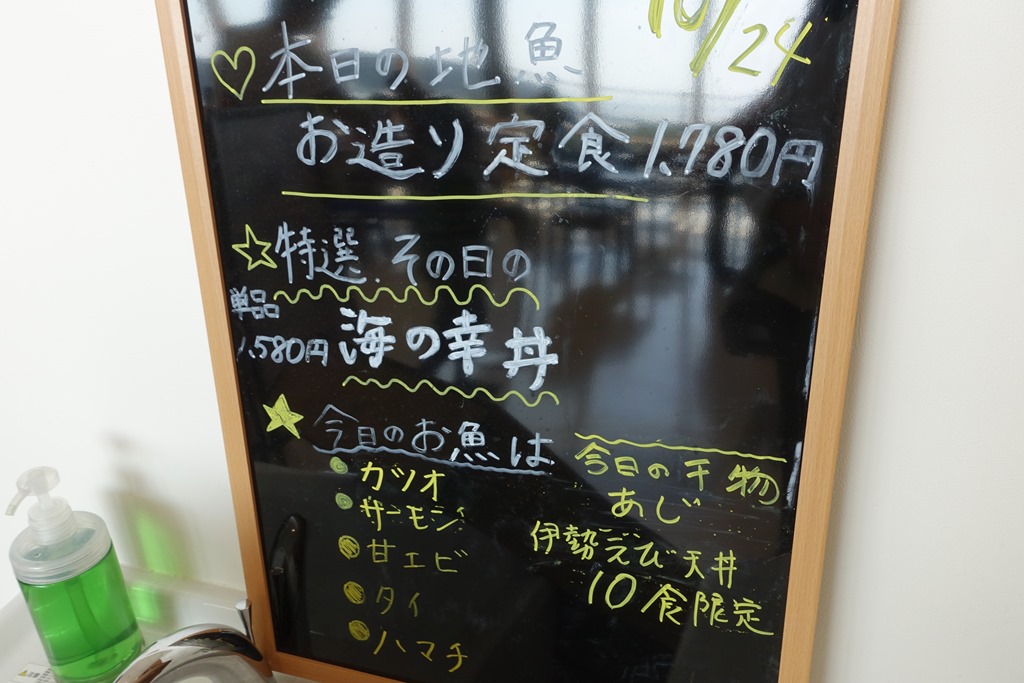 10/24
本日の地魚
お造り定食 1.780円
特選.その日の
単品
1.580円
海の幸丼
今日のお魚は
カツオ
サーモン
甘エビ
タイ
ハマチ
今日の干物
あじ
伊勢えび天丼
10食限定